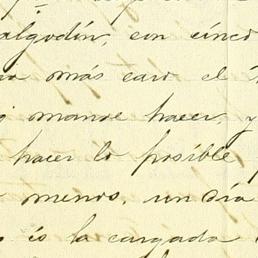 algodín, con cinco
más caro el
manoe hacer, y
hacer lo posible
menos, un día
és la cargada